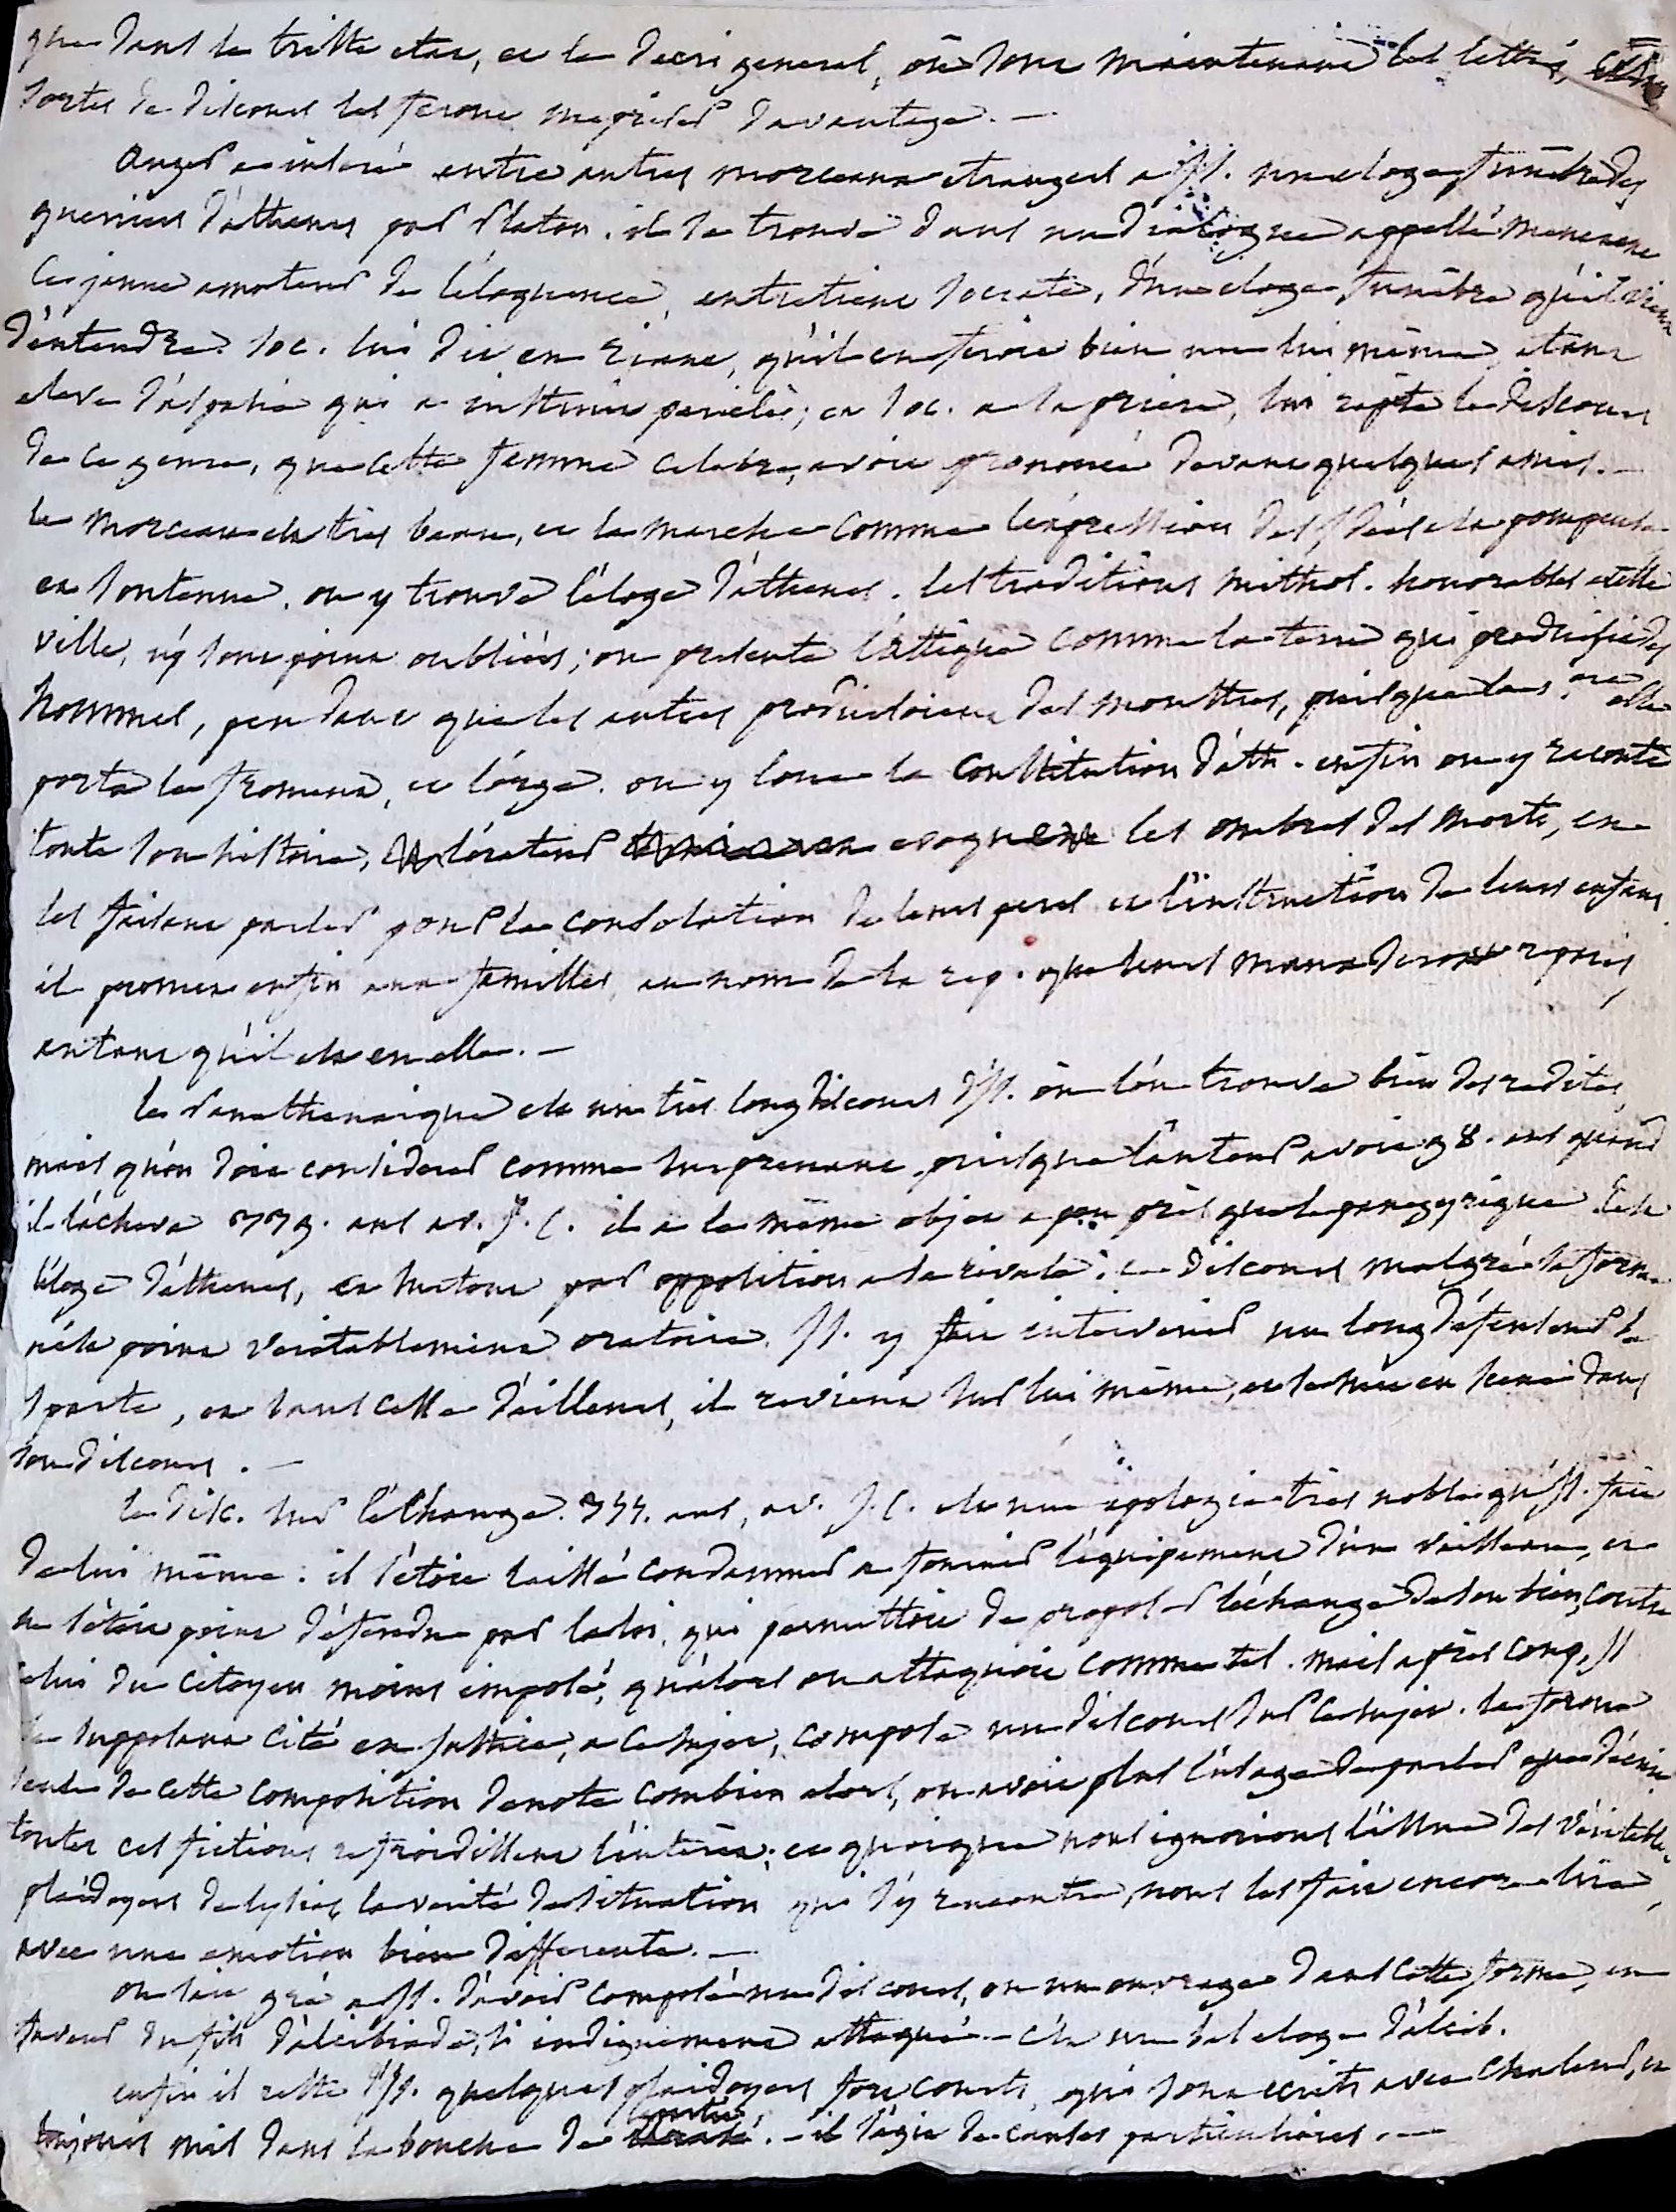 que dans le triste etat, et le decri general, où sont maintenant les lettres, ces
sortes de discours les feront mepriser davantage. —
Auger a inseré entre autres morceaux etrangers a Is. un eloge funèbre des
guerriers d'athenes par Platon. il se trouve dans un dialogue appellé menexene
Ce jeune amateur de l'éloquence, entretient Socrate, d'un eloge funèbre qu'il vient
d'entendre. Soc. lui dit en riant, qu'il en feroit bien un lui même, etant
eleve d'aspasie qui a instruit periclès; et Soc. a sa priere, lui repète le discours
de ce genre, que cette femme celebre, avoit prononcé devant quelques amis. —
le morceau est tres beau, et la marche comme l'expression des idées et la pompe
en soutenue. on y trouve l'éloge d'athenes. les traditions mithol. honorables a cette
ville, n'y sont point oubliées; on presente l'attique comme la terre qui produisit des
hommes, pendant que les autres produisoient des monstres, puisque elle
porta le froment, et l'orge. on y loue la Constitution d'ath. enfin on y raconte
toute son histoire, l'orateur evoque les ombres des morts, en
les faisant parler pour la consolation de leurs peres et l'instruction de leurs enfans
il promet enfin aux familles, au nom de la rep. que leurs maux seront reparés
autant qu'il est en elle. —
le Panathenaique est un très long discours d'Is. où l'on trouve bien des redites,
mais qu'on doit considerer comme surprenant, puisque l'auteur avoit 98. ans quand
il l'acheva 339. ans av. J. C. il a le même objet a peu près que le panegyrique. C'est
l'éloge d'athenes, et surtout par opposition a sa rivale. ce discours malgré sa forme
n'est point veritablement oratoire. Is. y fait intervenir un long defenseur de
Sparte, et sans cesse d'ailleurs, il revient sur lui même, et se met en scene dans
son discours. —
le disc. sur l'échange. 355. ans, av. J. C. est une apologie tres noble qu'Is. fait
de lui même: il s'étoit laissé condamner a fournir l'équipement d'un vaisseau, et
ne s'étoit point défendu par la loi, qui permettoit de proposer l'échange de son bien, contre
celui du citoyen moins imposé, qu'alors on attaquoit comme tel. mais après coup, Is
se supposant cité en justice, a ce sujet, composa un discours sur ce sujet. la forme
seule de cette composition denote combien alors, on avoit plus l'usage de parler que d'écrire
toutes ces fictions refroidissent l'intérêt; et quoique nous ignorions l'issue des véritables
plaidoyers de lysias, la verité de situation qui s'y rencontre, nous les fait encore lire,
avec une emotion bien differente. —
on sait gré a Is. d'avoir composé un discours, ou un ouvrage dans cette forme, en
faveur du fils d'alcibiade, si indignement attaqué. — c'est un bel eloge d'alcib.
enfin il reste d'Is. quelques plaidoyers fort courts, qui sont ecrits avec chaleur, et
toujours mis dans la bouche de parties. — il s'agit de causes particulieres. —